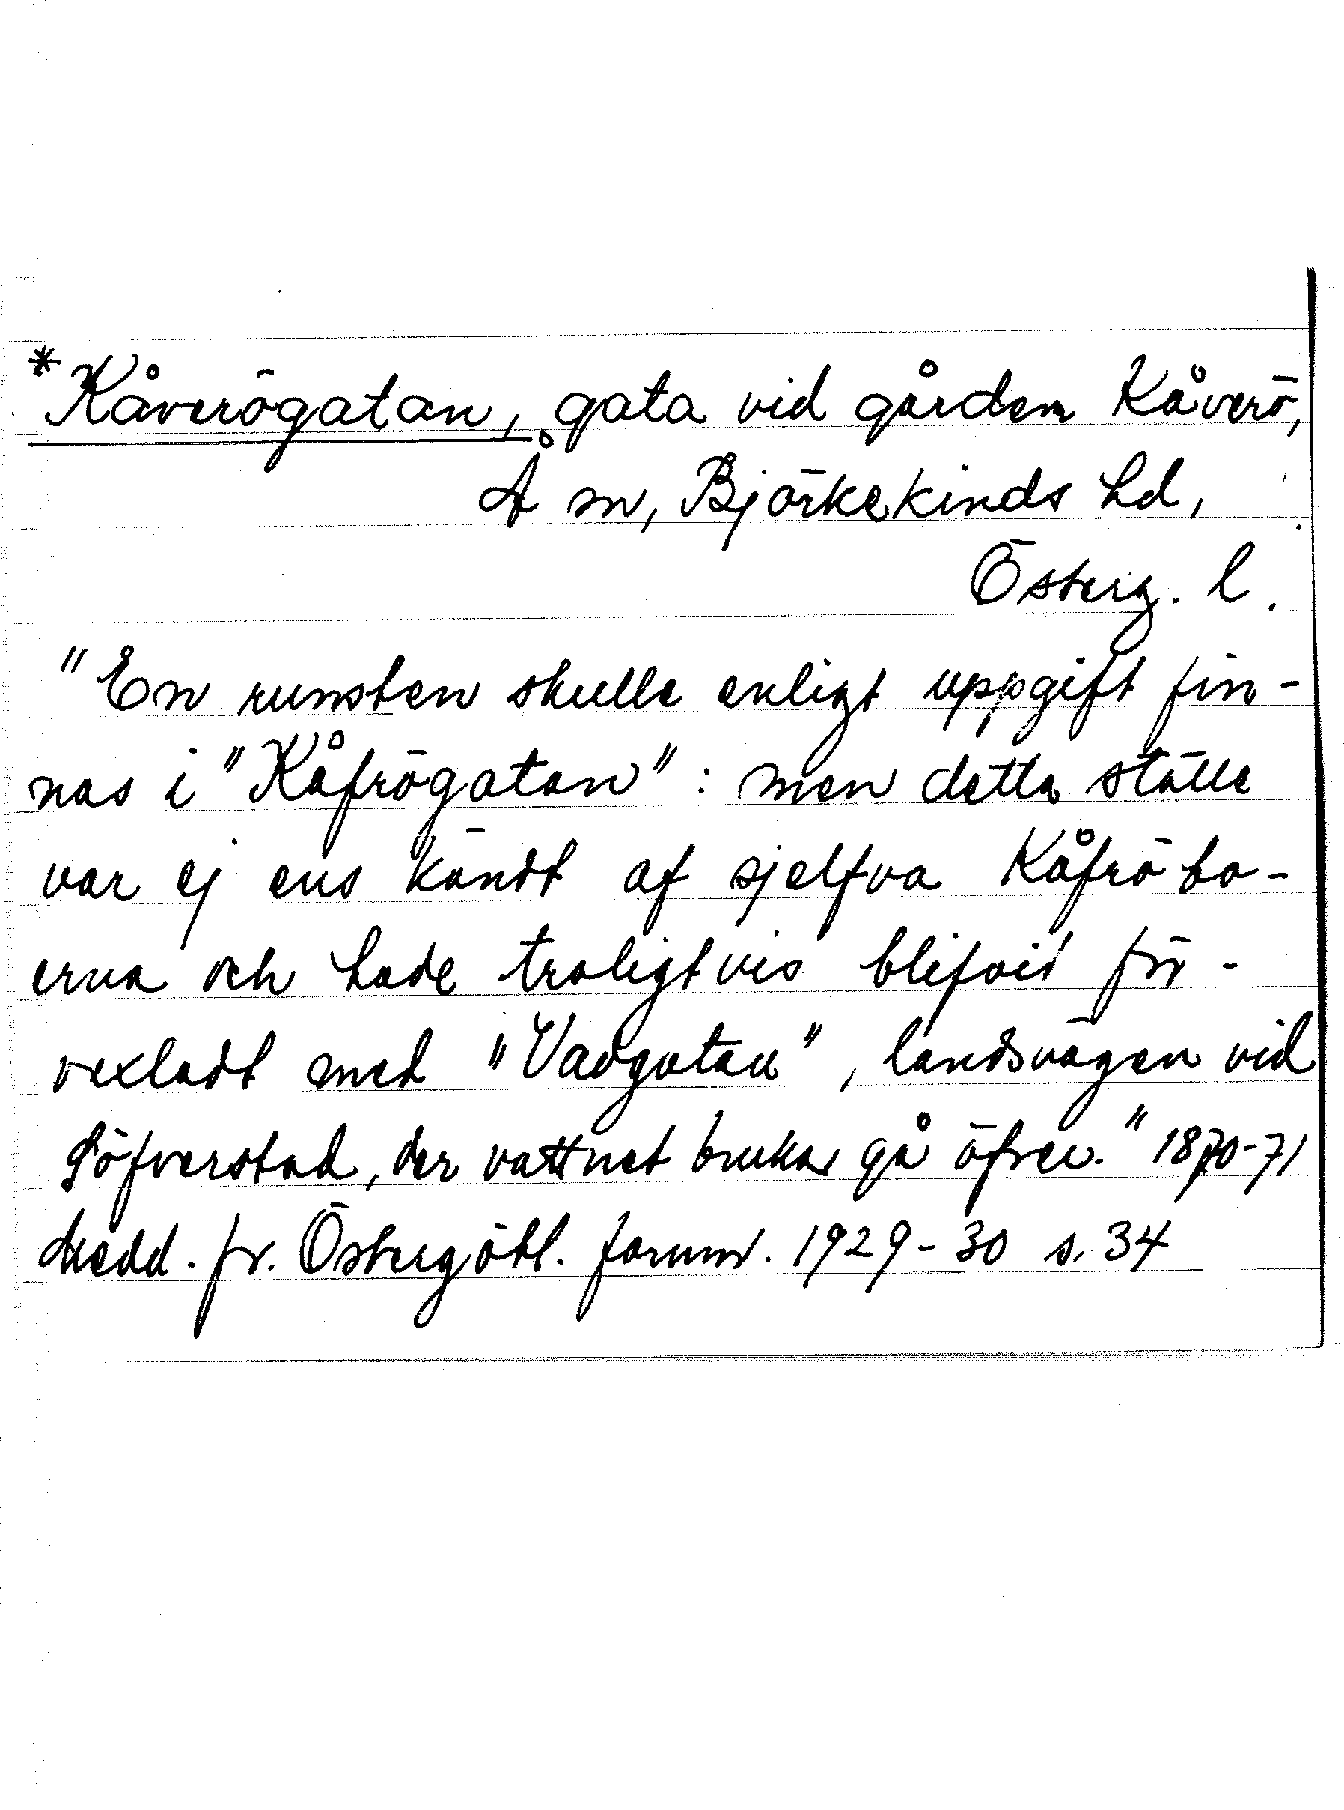 *Kåverögatan, gata vid gården Kåverö,
Å sn, Björkekinds hd,
Österg. l.
"En runsten skulle enligt uppgift fin-
nas i "Kåfrögatan": men detta ställe
var ej ens kändt af sjelfva Kåfröbo-
erna och hade troligtvis blifvit för-
vexladt med "Vadgatan", landsvägen vid
Göfverstad, der vattnet brukar gå öfver." 1870-71
Medd. fr. Östergötl. fornm. 1929-30 s. 34